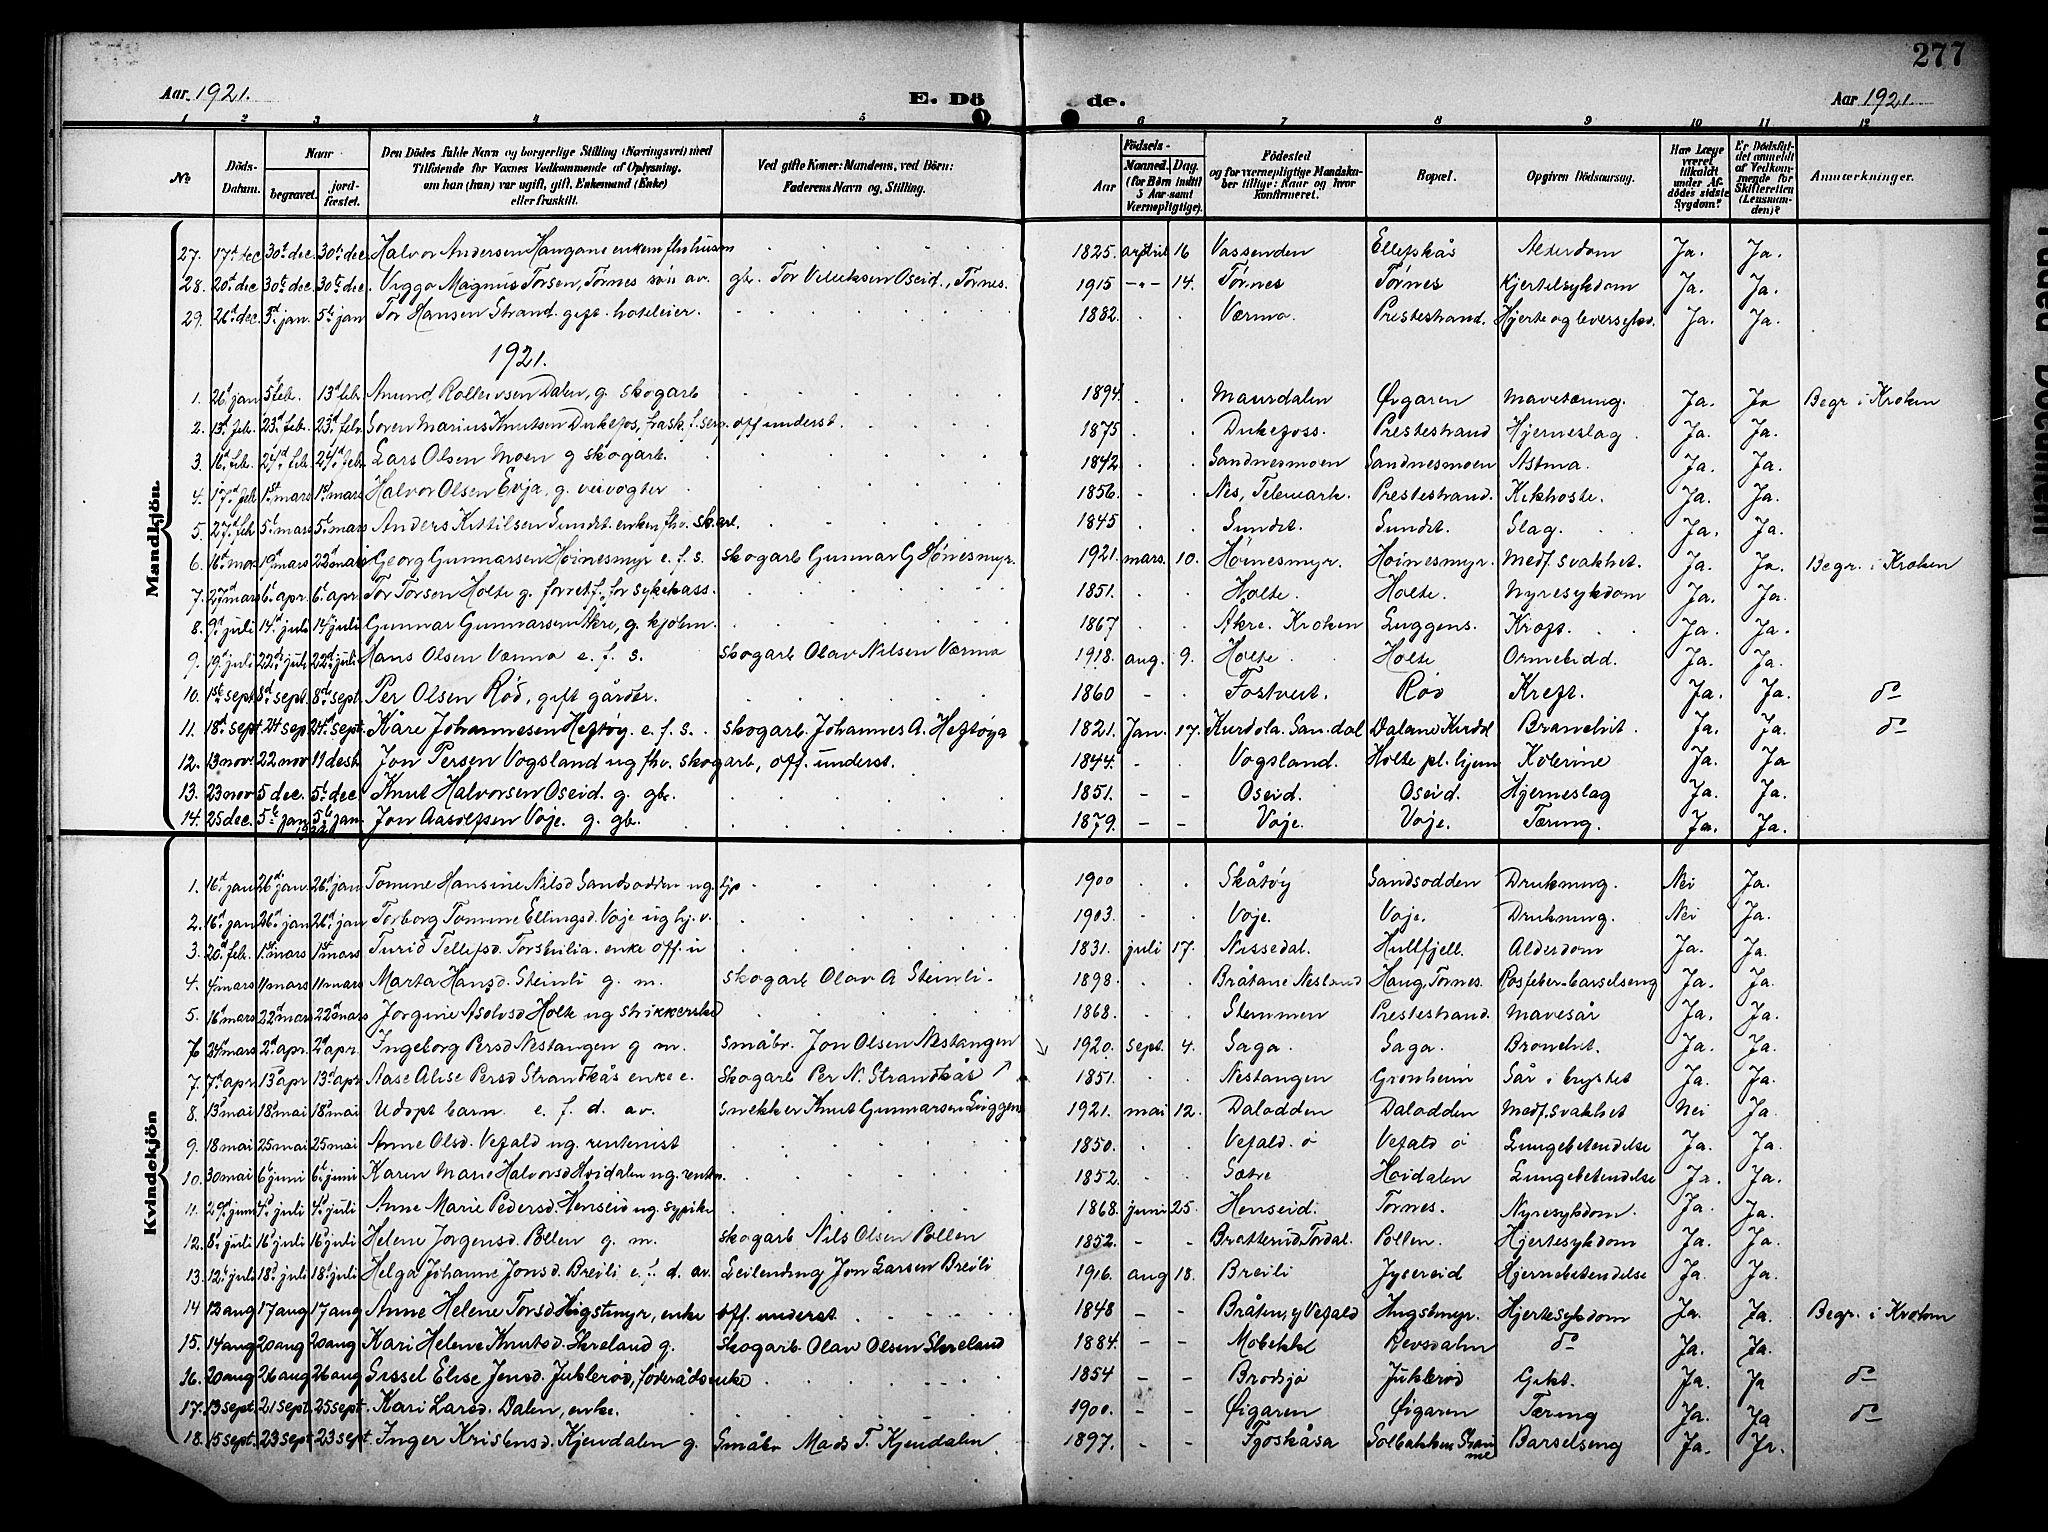 277
Aar 1921. E. Dö de. Aar 1921.
1 2 3 4 5 6 7 8 9 10 11 12
No Döds-Datum. Naar begravet. jordfæstet. Den Dödes fulde Navn og borgerlige Stilling (Næringsvei) med Tilföiende for Voxnes Vedkommende af Oplysning, om han (hun) var ugift, gift, Enkemand (Enke) eller fraskilt. Ved gifte Koner: Mandens, ved Börn: Faderens Navn og Stilling. Födsels- Aar Maaned. Dag. (for Börn indtil 5 Aar samt Værnepligtige). Födested og for værnepligtige Mandskaber tillige: Naar og hvor konfirmeret. Bopæl. Opgiven Dödsaarsag. Har Læge været tilkaldt under Afdödes sidste Sygdom? Er Dödsfaldet anmeldt af Vedkommende for Skifteretten (Lensmanden)? Anmærkninger.
Mandkjön.
27. 17d dec 30te dec. 30te dec. Halvor Andersen Haugane enkem fhv husm 1825. april 16 Vassenden Ellefskås Alderdom Ja. Ja.
28. 20de dec 30te dec. 30te dec. Viggo Magnus Torsen, Tørnes søn av. gbr. Tor Vetleksen Oseid, Tørnes. 1915 -"- 14. Tørnes Tørnes Kjertelsykdom Ja. Ja.
29. 26d dec. 5te jan. 5te jan Tor Hansen Strand. gift. hoteleier. 1882. Værmo. Prestestrand. Hjerte og leversykd. Ja. Ja.
1921.
1. 26d jan 5te feb. 13d feb. Anund Rolleivsen Dalen, g. skogarb 1894. Maursdalen Øigaren Mavetæring. Ja. Ja Begr i Kroken
2. 13d feb. 23d feb. 23d feb Søren Marius Knutsen Dukefos, frask. f. serg. off underst. 1875 Dukefoss. Prestestrand Hjerneslag. Ja. Ja.
3. 16d feb. 24d feb. 24d feb Lars Olsen Moen g skogarb. 1842 Sandnesmoen Sandnesmoen Astma. Ja. Ja.
4. 17d feb 1st mars 1st mars Halvor Olsen Evja, g. veivogter 1856. Nes, Telemark. Prestestrand. Kikhoste. Ja. Ja.
5. 27d feb 5te mars 5te mars Anders Kittilsen Sundet. enkem, fhv. skogarb. 1845 Sundet. Sundet. Slag. Ja. Ja.
6. 16d mars 19d mars 22d mars Georg Gunnarsen Høinesmyr e. f. s. skogarb Gunnar G Høinesmyr. 1921. mars. 10. Høinesmyr. Høinesmyr. Medf. svakhet. Ja. Ja. Begr. i Kroken
7. 27d mars 6te apr. 6te apr. Tor Torsen Holte g. forretf. for sykekass. 1851. Holte. Holte. Nyresykdom Ja. Ja.
8. 9d juli 14d juli 14d juli Gunnar Gunnarsen Akre, g. kjølm. 1867 Akre. Kroken Luggens. Kræft. Ja. Ja.
9. 19d juli 22d juli 22d juli Hans Olsen Værmo e. f. s. Skogarb Olav Nilsen Værmo 1918. aug. 9. Holte. Holte Ormebidd. Ja. Ja.
10. 1st sept 8d sept 8d sept. Per Olsen Rød, gift gårdbr. 1860 Fostveit. Rød Kreft. Ja. Ja. do
11. 18d sept. 24 sept 24d sept. Kåre Johannesen Heftøy. e. f. s. Skogarb. Johannes A. Heftøya 1821. Jan. 17. Kurdøla. Sandal Daland Kurdøl Bronchit. Ja. Ja. do
12. 13 nov. 22 nov 11 desb. Jon Persen Vogsland ug fhv. skogarb, off. underst. 1844. Vogsland. Holte pl. hjem Kolerine Ja. Ja
13. 23 nov 5 dec. 5te dec Knut Halvorsen Oseid. g. gbr. 1851. Oseid. Oseid. Hjerneslag Ja. Ja.
14. 25 dec. 5te jan 1922 5te jan. Jon Aasolfsen Voje. g. gb. 1879. Voje. Voje. Tæring. Ja. Ja.
Kvindekjön
1. 16d jan 26d jan. 26d jan Tomine Hansine Nilsd Sandsodden ug. tjp 1900 Skåtøy Sandsodden Drukning. Nei Ja.
2. 16d jan 26d jan 26d jan Torborg Tomine Ellingsd. Voje ug hj. v. 1903. Voje. Voje. Drukning. Nei Ja.
3. 20d feb. 1st mars 1st mars Turid Tellefsd. Torskilia. enke off. u 1831. juli 17. Nissedal. Hullfjell. Alderdom Ja. Ja.
4. 4 mars 11 mars 11 mars Marta Hansd. Steinli g. m. Skogarb Olav A Steinli. 1898. Bråtane Nesland Haug, Tørnes. Rosfeber-barselseng Ja. Ja.
5. 16d mars 22d mars 22d mars Jørgine Asolvsd Holte ug strikkerske 1868. Stemmen Prestestrand. Mavesår Ja. Ja.
6 24d mars 2d apr. 2d apr. Ingeborg Persd Nestangen g m. Småbr. Jon Olsen Nestangen 1920. Sept. 4. Saga. Saga. Bronchit. Ja. Ja.
7. 7d apr 13d apr 13d apr Aase Alise Persd Strandkås enke e. Skogarb Per N. Strandkås 1851. Nestangen Grønheim Sår i brystet Ja. Ja.
8. 13d mai 18d mai 18d mai Udøpt barn e. f. d. av. Snekker Knut Gunnarsen Luggens 1921. mai 12. Dalodden Dalodden Medf. svakhet Nei Ja.
9. 18 mai 25 mai 25 mai Anne Olsd. Vefald ug. rentenist 1850. Vefald. ø Vefald ø Lungebetendelse Ja. Ja.
10. 30 mai 6te juni 6te juni Karen Marie Halvorsd Høidalen ug. rentn. 1852. Sætre Høidalen Lungebetendelse Ja. Ja.
11. 29d juni 4d juli 4d juli Anne Marie Pedersd. Henseid ug. sypike 1868. juni 25. Henseid. Tørnes. Nyresykdom. Ja. Ja.
12. 8d juli 16d juli 16d juli Helene Jørgensd. Pollen g. m. Skogarb Nils Olsen Pollen 1852. Bratteruid Tørdal. Pollen. Hjertesykdom Ja. Ja.
13. 12d juli 18d juli 18d juli Helga Johanne Jonsd. Breili e. f. d. av Leilending Jon Larsen Breili 1916. aug 18. Breili Jysereid Hjernebetendelse Ja. Ja.
14 12 aug 17 aug 17 aug Anne Helene Torsd Hugstmyr, enke off. underst 1848 Bråten, y Vefald Hugstmyr. Hjertesykdom Ja. Ja. Begr. i Kroken
15. 14 aug 20 aug 20 aug Kari Helene Knutsd. Skreland g. Skogarb. Olav Olsen Skreland 1884. Mobekk Revsdalen do Ja. Ja.
16. 20 aug 26 aug 26 aug Sissel Elise Jensd. Juklerød, føderådsenke 1854 Brodsjø Juklerød Gikt. Ja. Ja do
17. 13 sept. 21 sept. 25 sept. Kari Larsd. Dalen, enke. 1900. Øigaren Øigaren Tæring Ja. Ja do
18. 15 sept. 23 sept. 23 sept. Inger Kristensd. Kjendalen g. Småbr Mads T. Kjendalen. 1897. Fjøskåsa Solbakken Barselseng Ja. Ja.